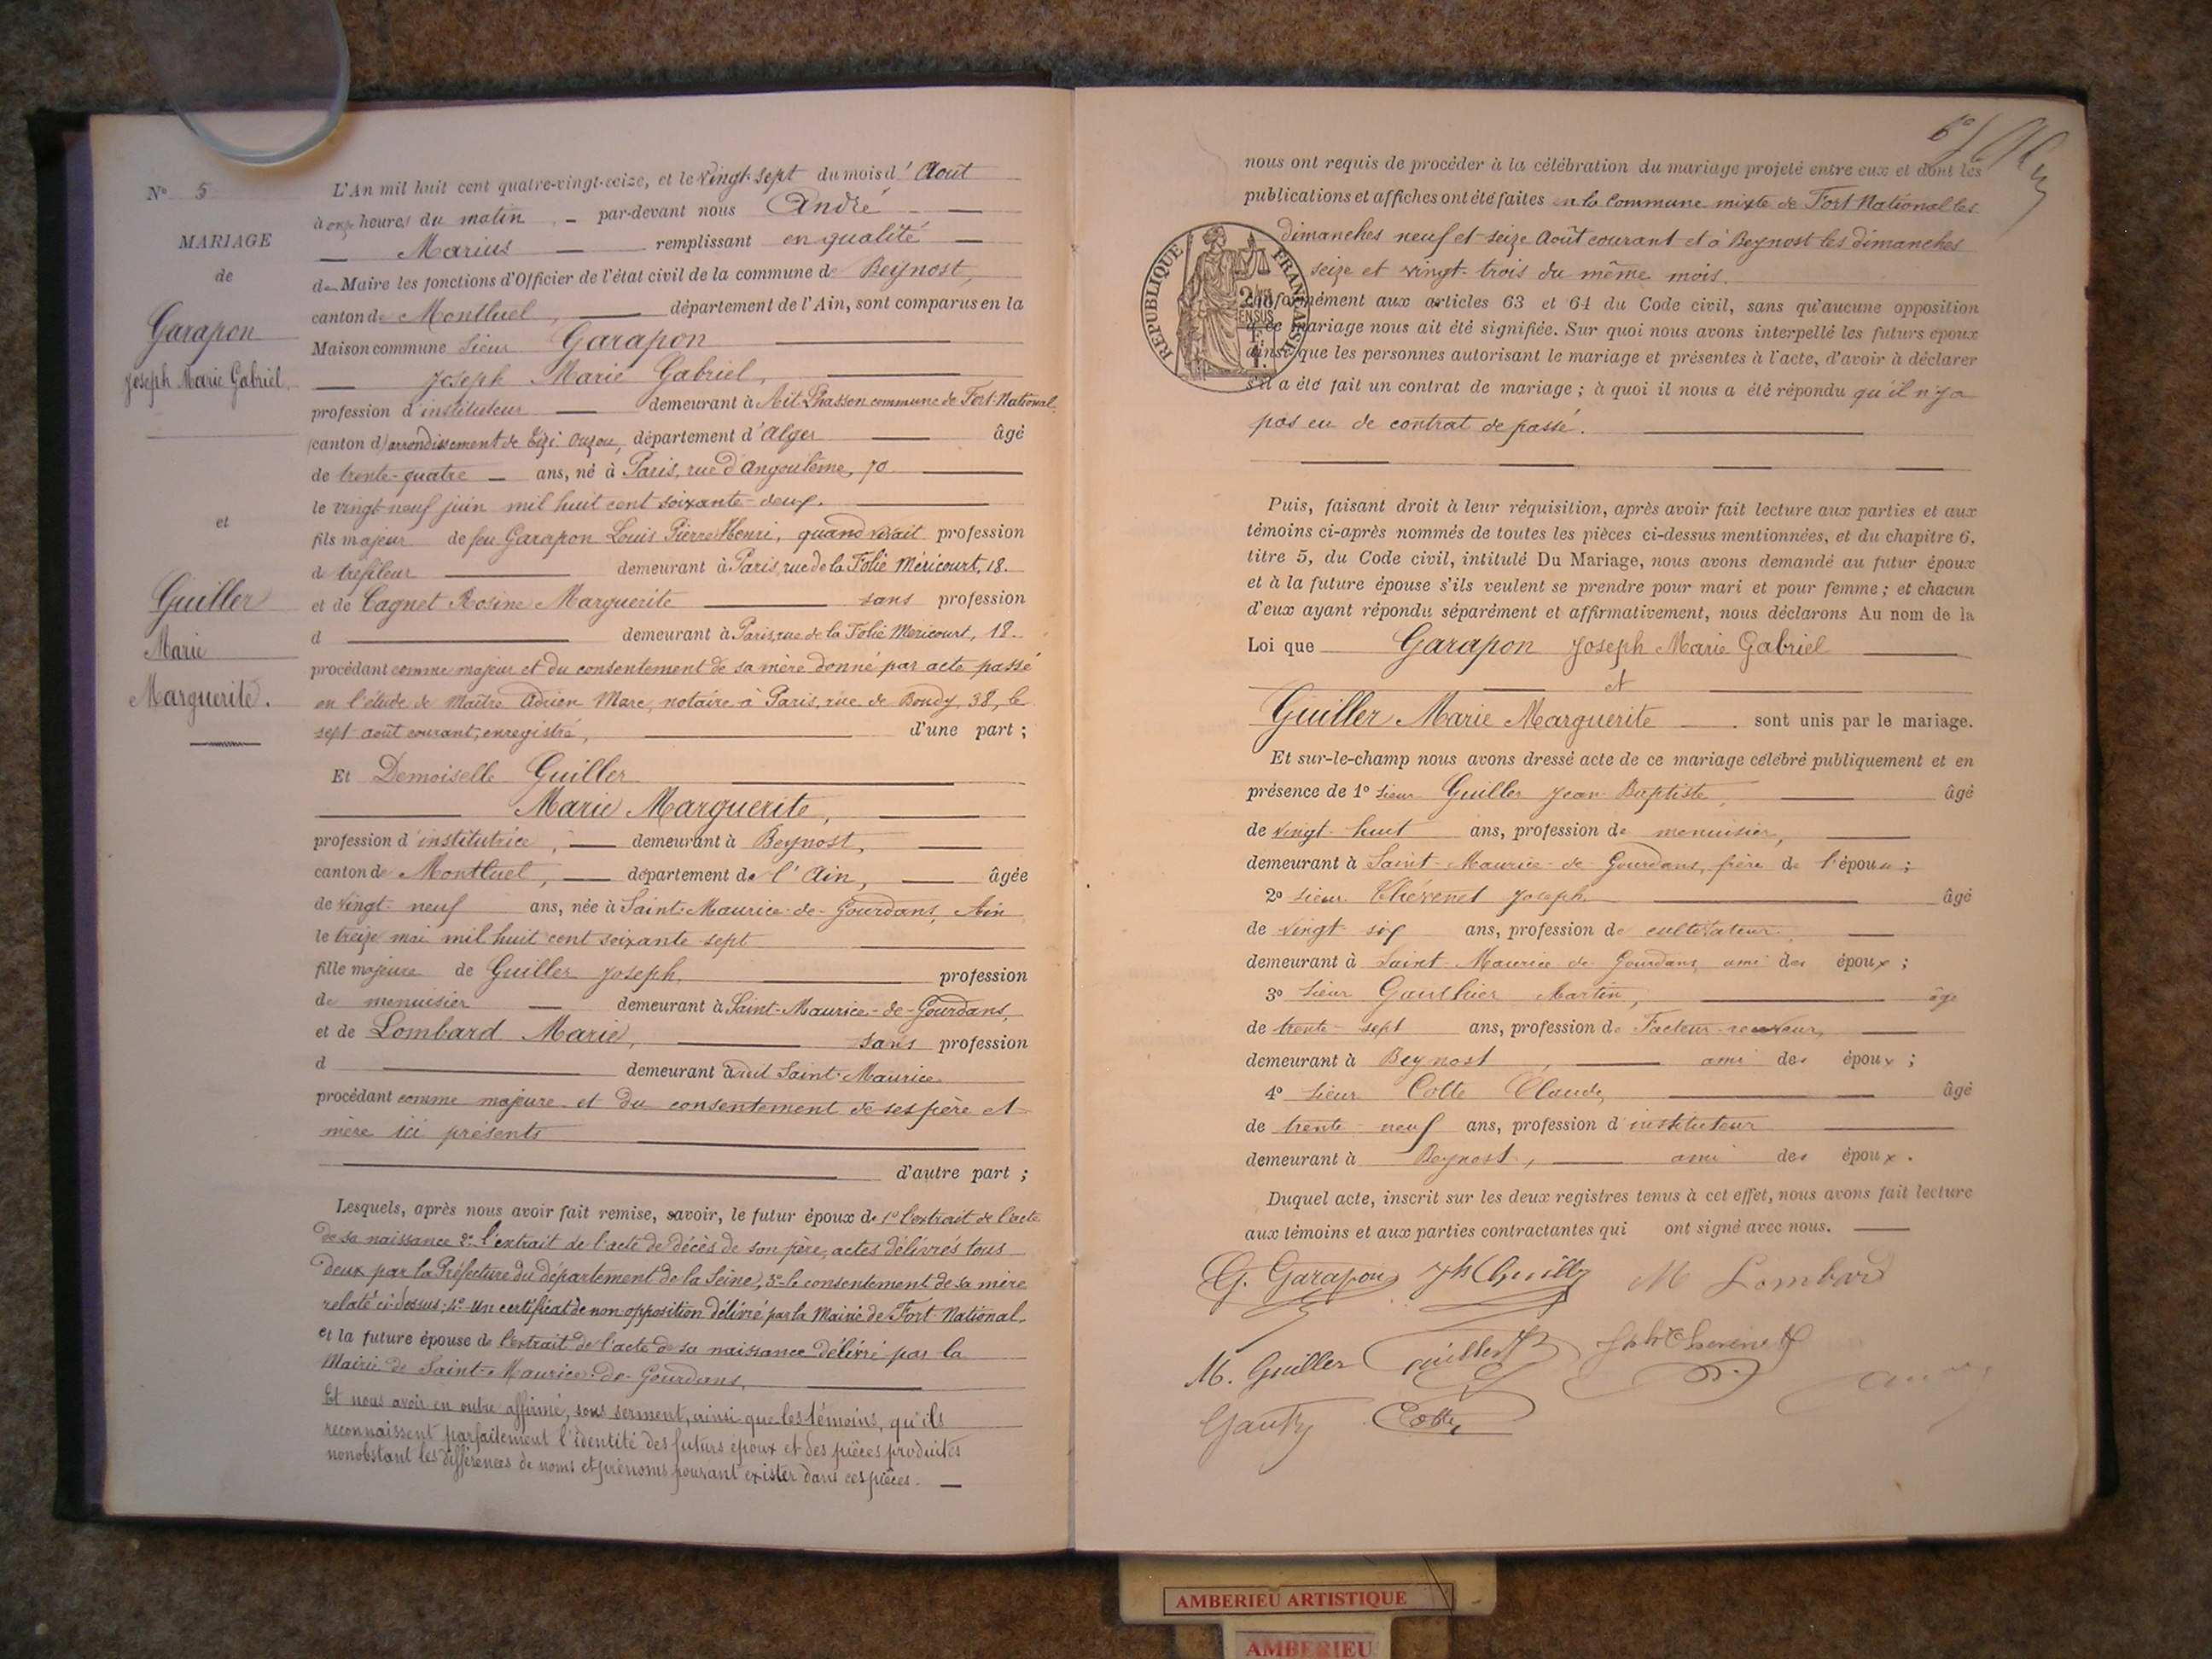 N° 5
MARIAGE
de
Garapon
Joseph Marie Gabriel.
et
Guiller
Marie
Marguerite.
L'An mil huit cent quatre-vingt-seize, et le vingt-sept du mois d'Août
à onze heures du matin par-devant nous André
Marius remplissant en qualité
de Maire les fonctions d'Officier de l'état civil de la commune de Beynost,
canton de Montluel, département de l'Ain, sont comparus en la
Maison commune Sieur Garapon
Joseph Marie Gabriel,
profession d'instituteur demeurant à commune de Fort-National
(canton d) arrondissement de Tizi Ouzou, département d'Alger âgé
de trente-quatre ans, né à Paris, rue d'Angoulême, 70
le vingt-neuf juin mil huit cent soixante-deux.
fils majeur de feu Garapon Louis Pierre Henri, quand vivait profession
de tréfileur demeurant à Paris, rue de la Folie Méricourt, 18.
et de Cagnet Rosine Marguerite sans profession
d demeurant à Paris, rue de la Folie Méricourt, 18.
procédant comme majeur et du consentement de sa mère donné par acte passé
en l'étude de Maître Adrien Marc, notaire à Paris, rue de Bondy, 38, le
sept août courant, enregistré, d'une part ;
Et Demoiselle Guiller
Marie Marguerite,
profession d'institutrice, demeurant à Beynost,
canton de Montluel, département de l'Ain, âgée
de vingt-neuf ans, née à Saint-Maurice-de-Gourdans, Ain
le treize mai mil huit cent soixante sept
fille majeure de Guiller Joseph, profession
de menuisier demeurant à Saint-Maurice-de-Gourdans,
et de Lombard Marie, sans profession
d demeurant audit Saint-Maurice
procédant comme majeure et du consentement de ses père et
mère ici présents
d'autre part ;
Lesquels, après nous avoir fait remise, savoir, le futur époux de 1° l'extrait de l'acte
de sa naissance 2° l'extrait de l'acte de décès de son père, actes délivrés tous
deux par la Préfecture du département de la Seine, 3° le consentement de sa mère
relaté ci-dessus; 4° Un certificat de non opposition délivré par la Mairie de Fort-National.
et la future épouse de l'extrait de l'acte de sa naissance délivré par la
Mairie de Saint-Maurice-de-Gourdans,
Et nous avoir en outre affirmé, sous serment, ainsi que les témoins, qu'ils
reconnaissent parfaitement l'identité des futurs époux et des pièces produites
nonobstant les différences de noms et prénoms pouvant exister dans ces pièces.
nous ont requis de procéder à la célébration du mariage projeté entre eux et dont les
publications et affiches ont été faites en la Commune mixte de Fort National les
dimanches neuf et seize Août courant et à Beynost les dimanches
seize et vingt-trois du même mois.
REPUBLIQUE FRANCAISE
conformément aux articles 63 et 64 du Code civil, sans qu'aucune opposition
à ce mariage nous ait été signifiée. Sur quoi nous avons interpellé les futurs époux
ainsi que les personnes autorisant le mariage et présentes à l'acte, d'avoir à déclarer
s'il a été fait un contrat de mariage ; à quoi il nous a été répondu qu'il n'y a
pas eu de contrat de passé.
Puis, faisant droit à leur réquisition, après avoir fait lecture aux parties et aux
témoins ci-après nommés de toutes les pièces ci-dessus mentionnées, et du chapitre 6,
titre 5, du Code civil, intitulé Du Mariage, nous avons demandé au futur époux
et à la future épouse s'ils veulent se prendre pour mari et pour femme ; et chacun
d'eux ayant répondu séparément et affirmativement, nous déclarons Au nom de la
Loi que Garapon Joseph Marie Gabriel
et
Guiller Marie Marguerite sont unis par le mariage.
Et sur-le-champ nous avons dressé acte de ce mariage célébré publiquement et en
présence de 1° Sieur Guiller Jean Baptiste, âgé
de vingt-huit ans, profession de menuisier,
demeurant à Saint-Maurice-de-Gourdans, frère de l'épouse ;
2° Sieur Thévenet Joseph âgé
de vingt-six ans, profession de cultivateur
demeurant à Saint-Maurice-de-Gourdans, ami des époux ;
3° Sieur Gauthier Martin, âgé
de trente-sept ans, profession de Facteur-receveur,
demeurant à Beynost, ami des époux ;
4° Sieur Cotte Claude, âgé
de trente-neuf ans, profession d'instituteur
demeurant à Beynost, ami des époux.
Duquel acte, inscrit sur les deux registres tenus à cet effet, nous avons fait lecture
aux témoins et aux parties contractantes qui ont signé avec nous.
G. Garapon Jh Guiller M Lombard
M. Guiller Guiller JB Jph Thevenet
Cotte
AMBERIEU ARTISTIQUE
AMBERIEU